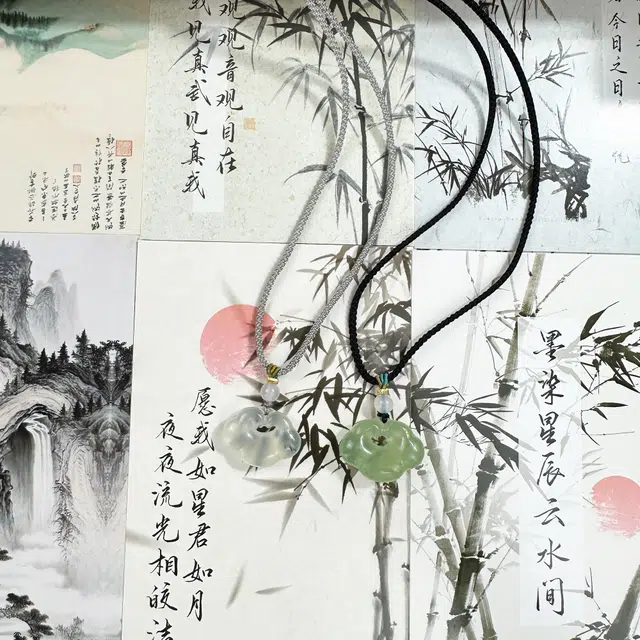 今日之日
观观音观自在
我见真武见真我
墨染星辰云水间
愿我如星君如月
夜夜流光相皎洁